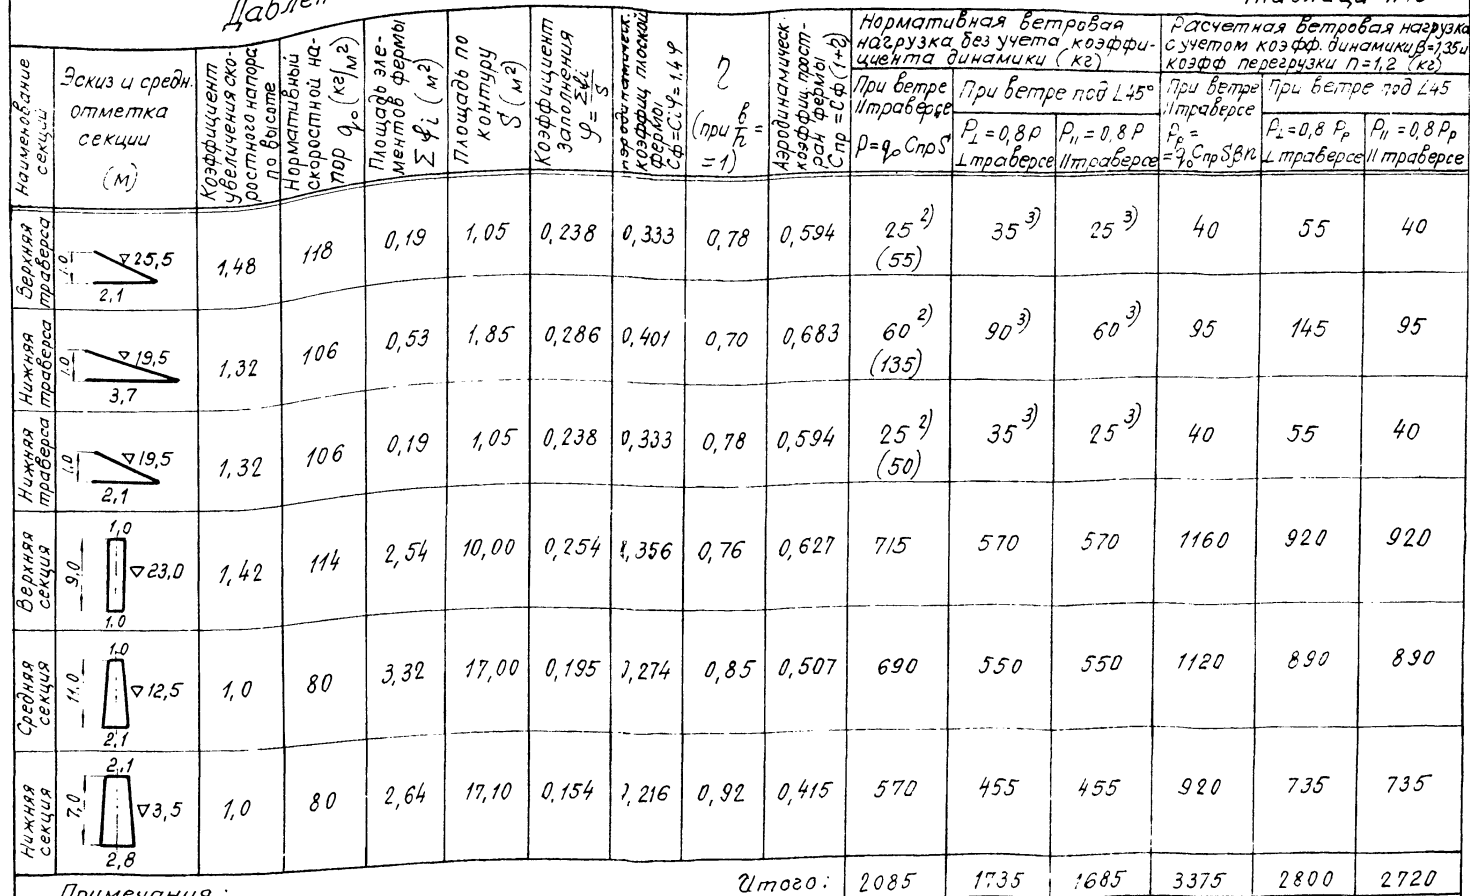 Наименование секции
Эскиз и средн. отметка секции (м)
Коэффициент увеличения скоростного напора по высоте
Нормативный скоростной напор q₀ (кг/м²)
Площадь элементов фермы Σfi (м²)
Площадь по контуру S (м²)
Коэффициент заполнения φ=Σfi/S
коэффиц плоской фермы Cф=Ciφ=1.4φ
η (при в/h = =1)
Аэродинамическ. коэффиц. простран фермы Cпр=Cф(1+η)
Нормативная ветровая нагрузка без учета коэффициента динамики (кг)
При ветре II траверсе P=q₀CпрS
При ветре под ∠45°
P⊥=0,8P ⊥траверсе
P∥=0,8P IIтраверсе
Расчетная ветровая нагрузка с учетом коэфф. динамики β=1,35 и коэфф перегрузки n=1,2 (кг)
При ветре II траверсе Pр= =q₀CпрSβn
При ветре под ∠45
P⊥=0,8Pр ⊥траверсе
P∥=0,8Pр II траверсе
Верхняя траверса 1.0 ▽25,5 2,1 1,48 118 0,19 1,05 0,238 0,333 0,78 0,594 25²⁾ (55) 35³⁾ 25³⁾ 40 55 40
Нижняя траверса 1.0 ▽19,5 3,7 1,32 106 0,53 1,85 0,286 0,401 0,70 0,683 60²⁾ (135) 90³⁾ 60³⁾ 95 145 95
Нижняя траверса 1.0 ▽19,5 2,1 1,32 106 0,19 1,05 0,238 0,333 0,78 0,594 25²⁾ (50) 35³⁾ 25³⁾ 40 55 40
Верхняя секция 1,0 9,0 ▽23,0 1,0 1,42 114 2,54 10,00 0,254 ,356 0,76 0,627 715 570 570 1160 920 920
Средняя секция 1.0 11.0 ▽12,5 2,1 1,0 80 3,32 17,00 0,195 ,274 0,85 0,507 690 550 550 1120 890 890
Нижняя секция 2,1 7,0 ▽3,5 2,8 1,0 80 2,64 17,10 0,154 ,216 0,92 0,415 570 455 455 920 735 735
Итого: 2085 1735 1685 3375 2800 2720
Примечания: